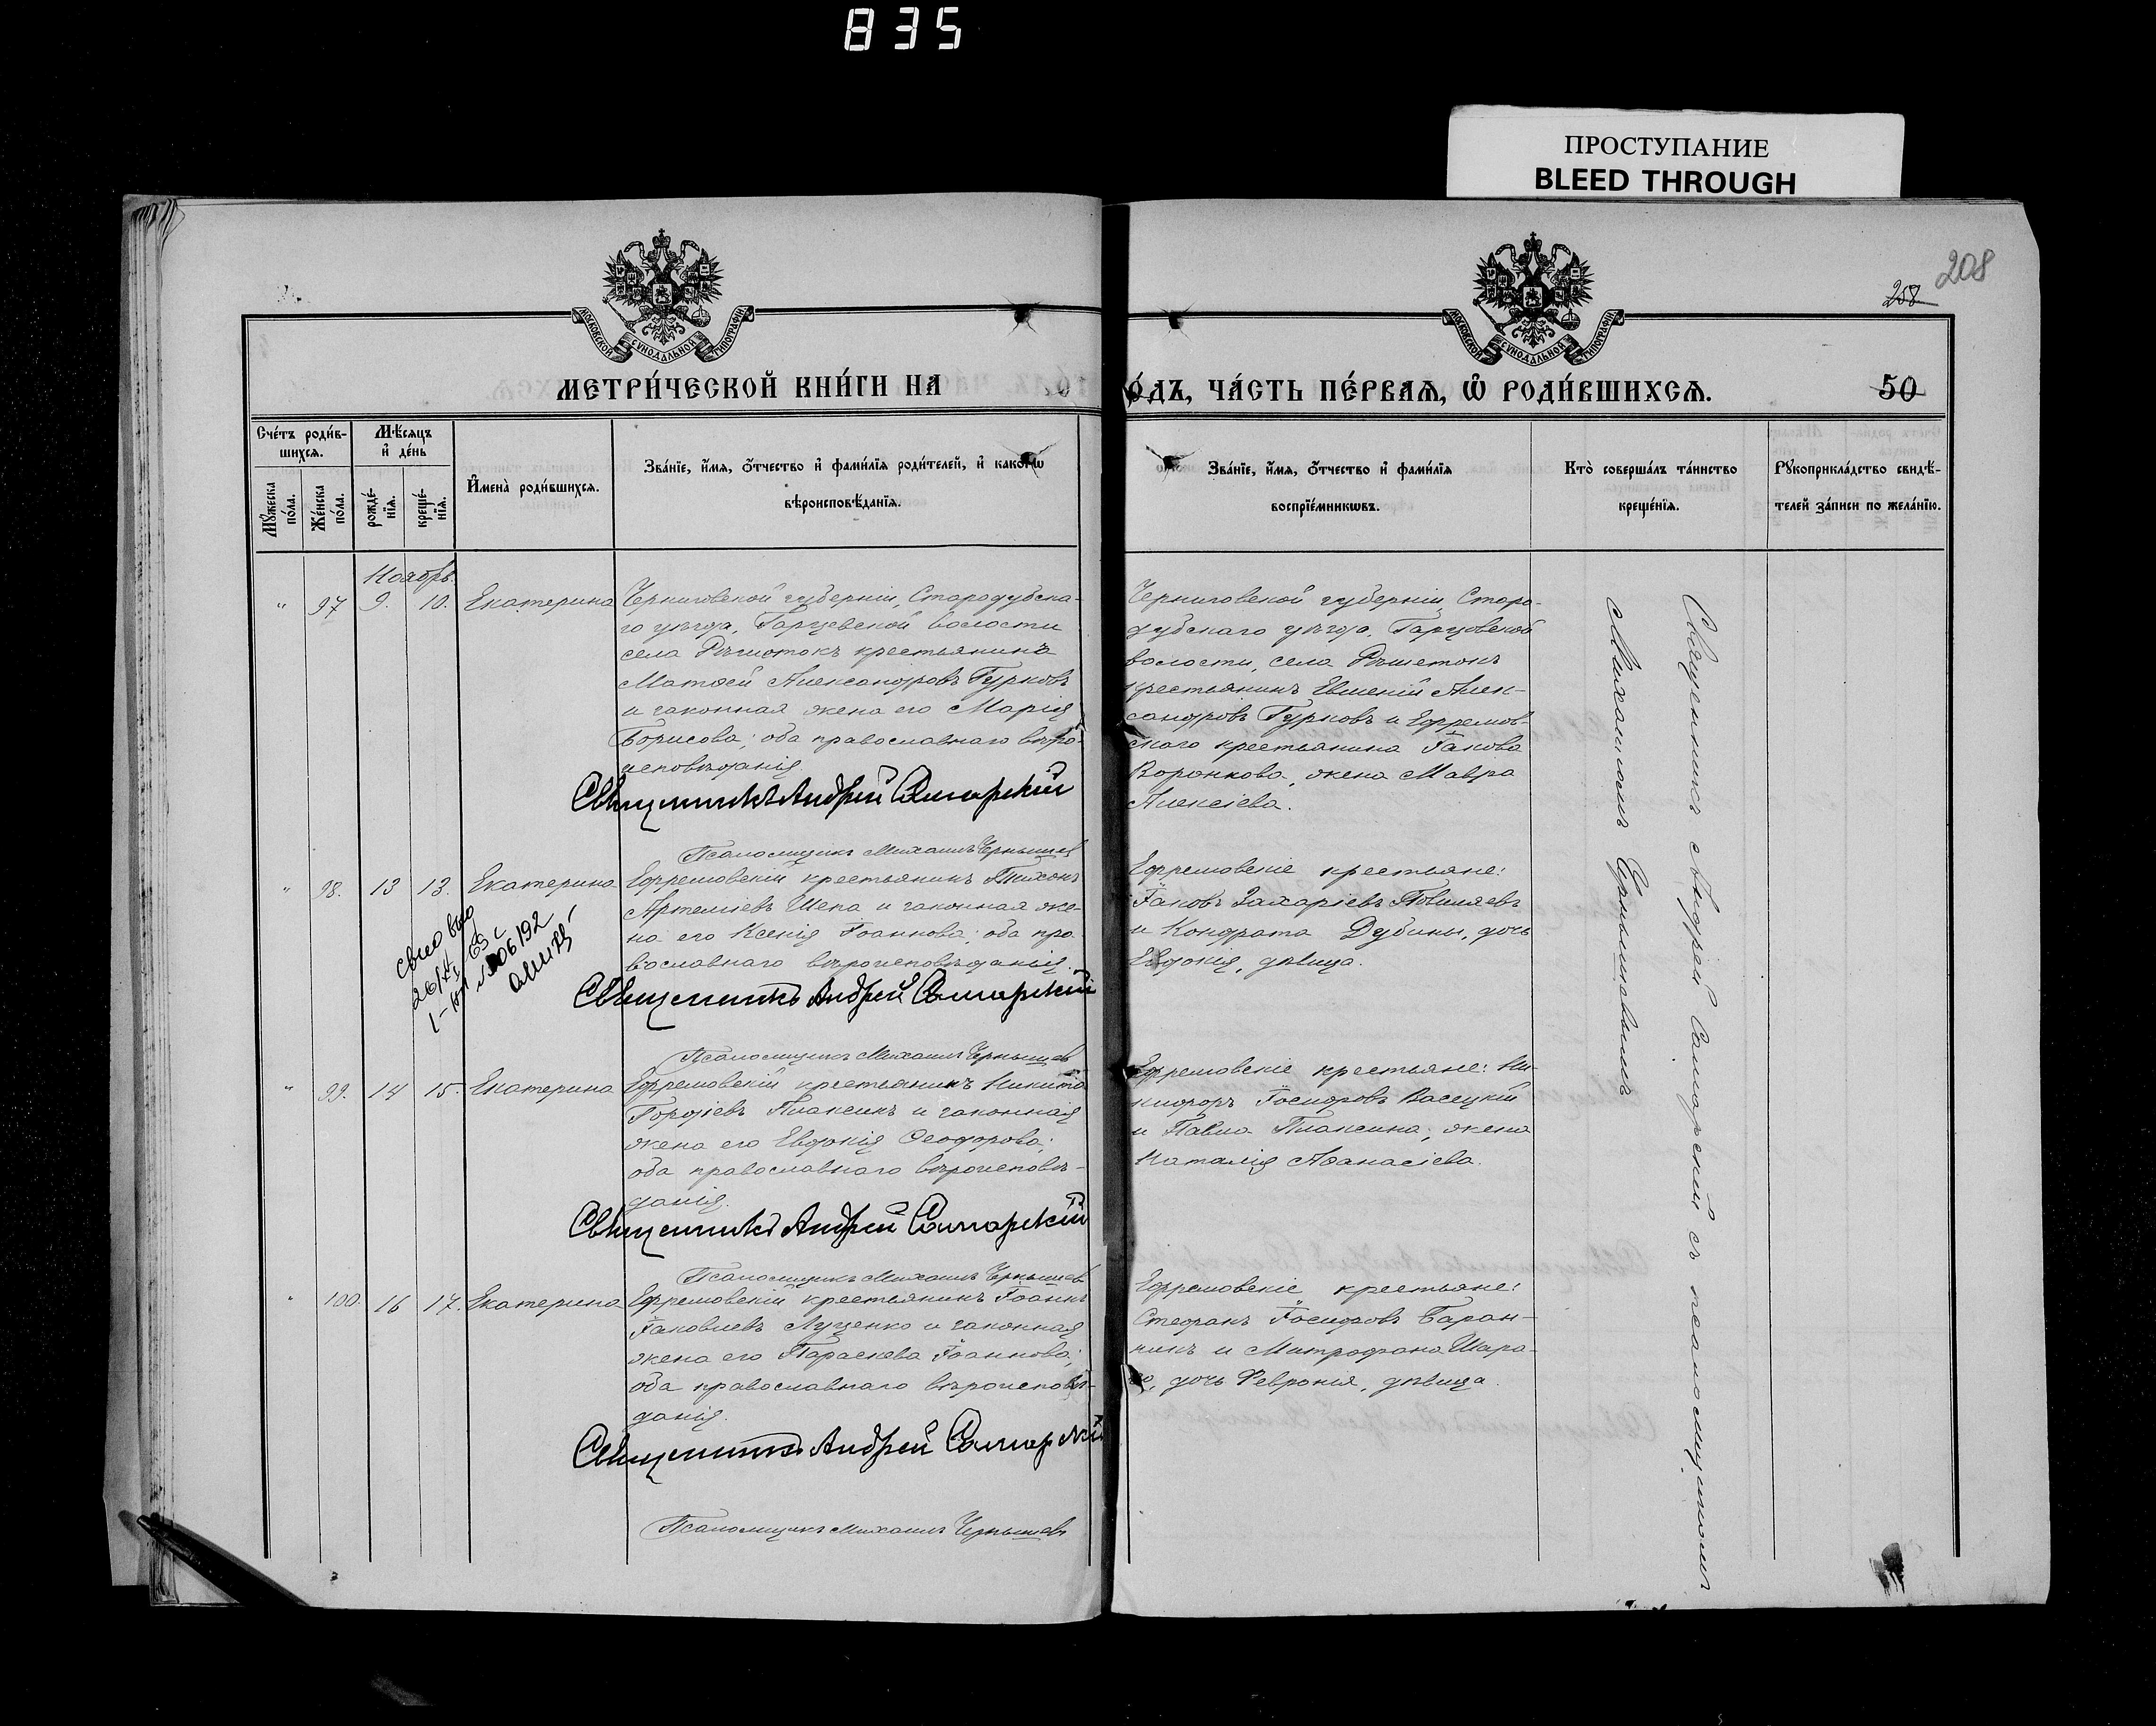 835
ПРОСТУПАНИЕ
BLEED THROUGH
208
258
МОСКОВСКОЙ СѴНОДАЛЬНОЙ ТИПОГРАФІИ
МОСКОВСКОЙ СѴНОДАЛЬНОЙ ТИПОГРАФІИ
МЕТРИ́ЧЕСКОЙ КНИ́ГИ НА
О́ДЪ, ЧА́СТЬ ПЕ́РВАѦ, Ѡ҆ РОДИ́ВШИХСѦ.
50
Сче́тъ роди́в-
шихсѧ.
Мѣ́сѧцъ
и҆ де́нь
Мꙋ́жеска по́ла.
Же́нска по́ла.
рожде́-
нїѧ.
креще́-
нїѧ.
И҆мена̀ роди́вшихсѧ.
Зва́нїе, и҆́мѧ, ѻ҆́тчество и҆ фами́лїѧ роди́телей, и҆ како́гѡ
вѣроисповѣ́данїѧ.
Зва́нїе, и҆́мѧ, ѻ҆́тчество и҆ фами́лїѧ
воспрїе́мникѡвъ.
Кто̀ соверша́лъ та́инство
креще́нїѧ.
Рꙋкоприкла́дство свидѣ́-
телей за́писи по жела́нїю.
Ноябрь.
" 97 9. 10. Екатерина
Черниговской губерніи, Стародубска-
го уѣзда, Гарцевской волости
села Рѣшотокъ крестьянинъ
Матѳей Александровъ Гурковъ
и законная жена его Марія
Борисова; оба православнаго вѣро-
исповѣданія
Священникъ Андрей Самарскій
Псаломщикъ Михаилъ Чернышев
Черниговской губерніи, Старо-
дубскаго уѣзда, Гарцовской
волости, села Рѣшетокъ
крестьянинъ Евгеній Алек-
сандровъ Гурковъ и Ефремов-
скаго крестьянина Іакова
Воронкова, жена Мавра
Алексіева.
" 98. 13 13. Екатерина
Ефремовскій крестьянинъ Тихонъ
Артеміевъ Шепа и законная же-
на его Ксенія Іоаннова; оба пра-
вославнаго вѣроисповѣданія
Священникъ Андрей Самарскій
Псаломщикъ Михаилъ Чернышев
Ефремовскіе крестьяне:
Іаковъ Захаріевъ
и Кондрата Дубины, дочь
Евдокія, дѣвица.
" 99. 14 15. Екатерина
Ефремовскій крестьянинъ Никита
Гордіевъ Плаксинъ и законная
жена его Евдокія Ѳеодорова;
оба православнаго вѣроисповѣ-
данія.
Священникъ Андрей Самарскій
Псаломщикъ Михаилъ Чернышев
Ефремовскіе крестьяне: Ни-
кифоръ Іосифовъ Васецкій
и Павла Плаксина, жена
Наталія Аѳанасіева.
" 100. 16 17. Екатерина
Ефремовскій крестьянинъ Іоаннъ
Іаковлевъ Луценко и законная
жена его Параскева Іоаннова;
оба православнаго вѣроисповѣ-
данія.
Священникъ Андрей Самарскій
Псаломщикъ Михаилъ Чернышевъ
Ефремовскіе крестьяне:
Стефанъ Іосифовъ Баран-
никъ и Митрофана Шара-
го, дочь Февронія, дѣвица.
Священникъ Андрей Самарскій съ псаломщикомъ
Михаиломъ Чернышевымъ